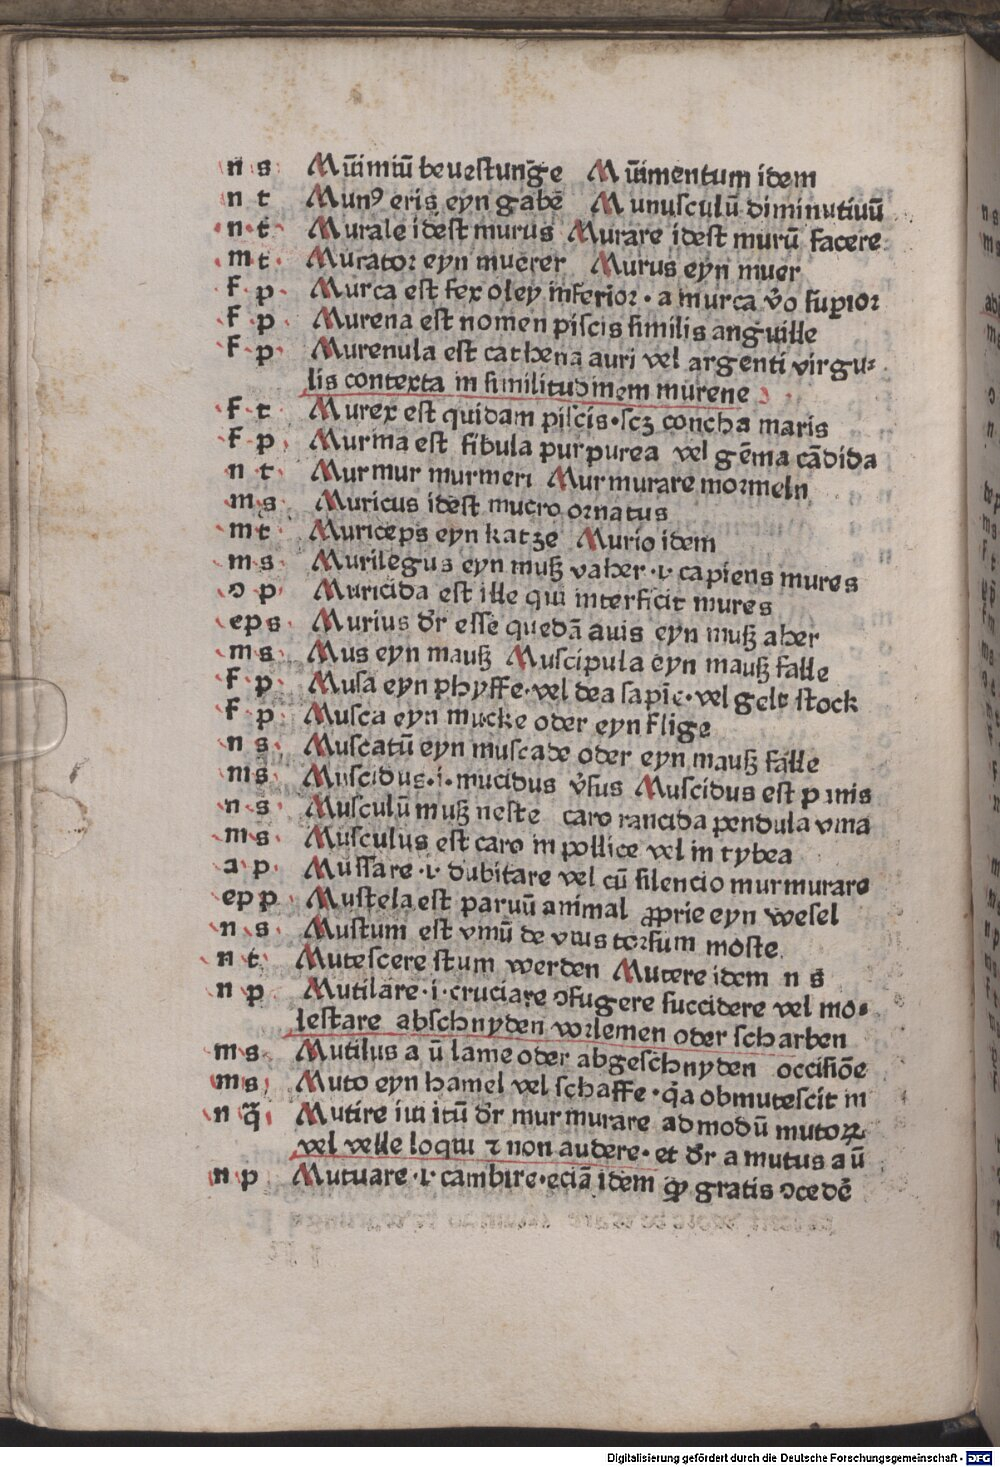 n s Mūimiū beuestunḡe Mūimentum idem
n t Munꝰ eris eyn gabē Munusculū diminutiuū
n t Murale idest murus Murare idest murū facere
m t Murator eyn muerer Murus eyn muer
f p Murca est fex oley inferior · a murca v̓o sup̱ior
f p Murena est nomen piscis similis anguille
f p Murenula est cathena auri vel argenti virgu⸗
lis contexta in similitudinem murene
f t Murex est quidam piscis · scꝫ concha maris
f p Murma est fibula purpurea vel gēma cādida
n t Murmur murmeri Murmurare mormeln
m s Muricus idest mucro ornatus
m t Muriceps eyn katze Murio idem
m s Murilegus eyn muß vaher · i · capiens mures
ɔ p Muricida est ille qui interficit mures
ep s Murius dr̄ esse quedā auis eyn muß aher
m s Mus eyn mauß Muscipula eyn mauß falle
f p Musa eyn phyffe · vel dea sapīe · vel gelt stock
f p Musca eyn mucke oder eyn flige
n s Muscatū eyn muscade oder eyn mauß falle
m s Muscidus · i · mucidus v̓sus Muscidus est panis
n s Musculū muß neste caro rancida pendula vina
m s Musculus est caro in pollice vel in tybea
a p Mussare · i · dubitare vel cū silencio murmurare
ep p Mustela est paruū animal ꝓprie eyn wesel
n s Mustum est vinū de vuis torsum moste
n t Mutescere stum werden Mutere idem n s
n p Mutilare · i · cruciare ɔfugere succidere vel mo⸗
lestare abschnyden vorlemen oder scharben
m s Mutilus a ū lame oder abgeschnyden occisiōe
m s Muto eyn hamel vel schaffe · q̄a obmutescit in
n q̄ Mutire iui itū dr̄ murmurare ad modū mutoꝝ
vel velle loqui ⁊ non audere · et dr̄ a mutus a ū
n p Mutuare · i · cambire · eciā idem ꝙ gratis ɔcedē
Digitalisierung gefördert durch die Deutsche Forschungsgemeinschaft - DFG